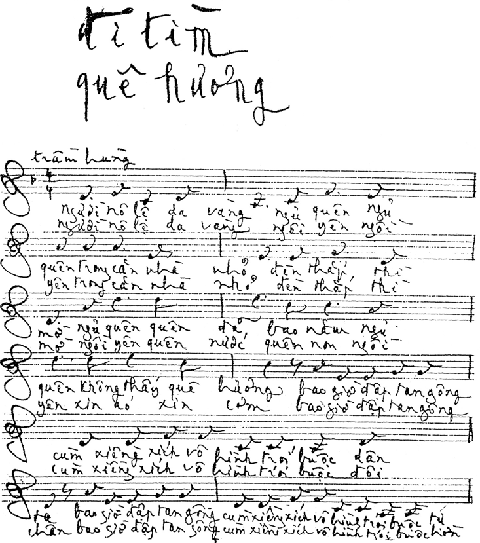 đi tìm
quê hương
trầm hùng
người nô lệ da vàng ngủ quên ngủ
người nô lệ da vàng ngồi yên ngồi
quên trong căn nhà nhỏ đèn thắp thì
yên trong căn nhà nhỏ đèn thắp thì
mờ ngủ quên quên đã bao năm ngủ
mờ ngồi yên quên nước quên non ngồi
quên không thấy quê hương bao giờ đập tan gông
yên xin áo xin cơm bao giờ đập tan gông
cùm xiềng xích vô hình trói buộc dân
cùm xiềng xích vô hình trói buộc đôi
ta bao giờ đập tan gông cùm xiềng xích vô hình trói buộc tá
chân bao giờ đập tan gông cùm xiềng xích vô hình trói buộc hồn